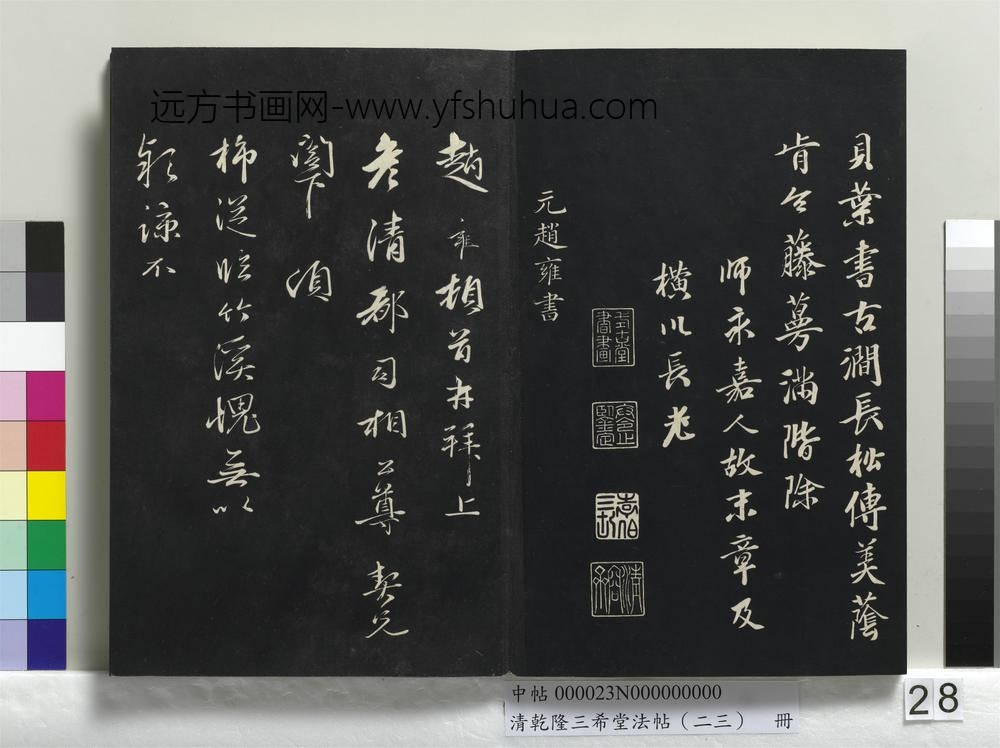 远方书画网-www.yfshuhua.com
貝葉書古澗長松傳美蔭
肯令藤蔓滿階除
師永嘉人故末章及
橫川長老
元趙雍書
趙雍頓首再拜上
彥清郡司相公尊契兄
閣下須
柿從臨竹溪愧無以
諒不
中帖 000023N000000000
清乾隆三希堂法帖（二三） 冊
28